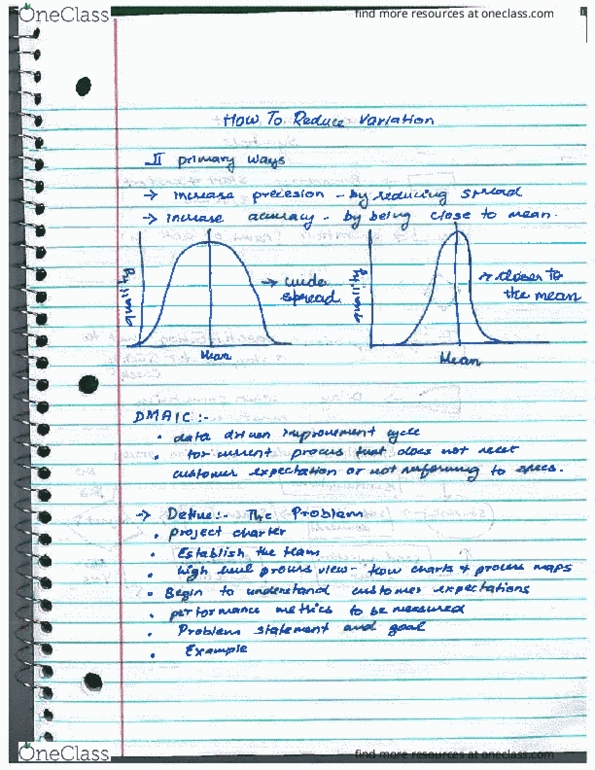 OneClass
find more resources at oneclass.com
How To Reduce Variation
II primary ways
→ increase precesion - by reducing spread
→ increase accuracy - by being close to mean.
quality
→ wide spread
Mean
quality
→ closer to the mean
Mean
DMAIC :-
• data driven improvement cycle
• for current process that does not meet
customer expectation or not performing to specs.
→ Define:- The Problem
• project charter
• Establish the team
• high level process view - flow charts & process maps
• Begin to understand customer expectations
• performance metrics to be measured
• Problem statement and goal
• Example
OneClass
find more resources at oneclass.com